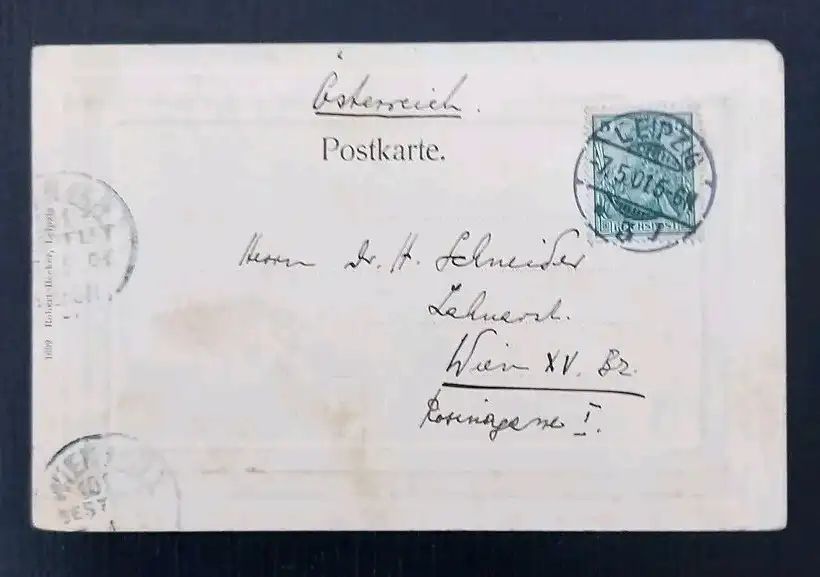 Österreich.
Postkarte.
LEIPZIG
7.5.01.6-6N
REICHSPOST
Herrn Dr. H. Schneider
Wien XV. Bz.
Rosinagasse I.
Robert Becker, Leipzig
WIEN
BEST